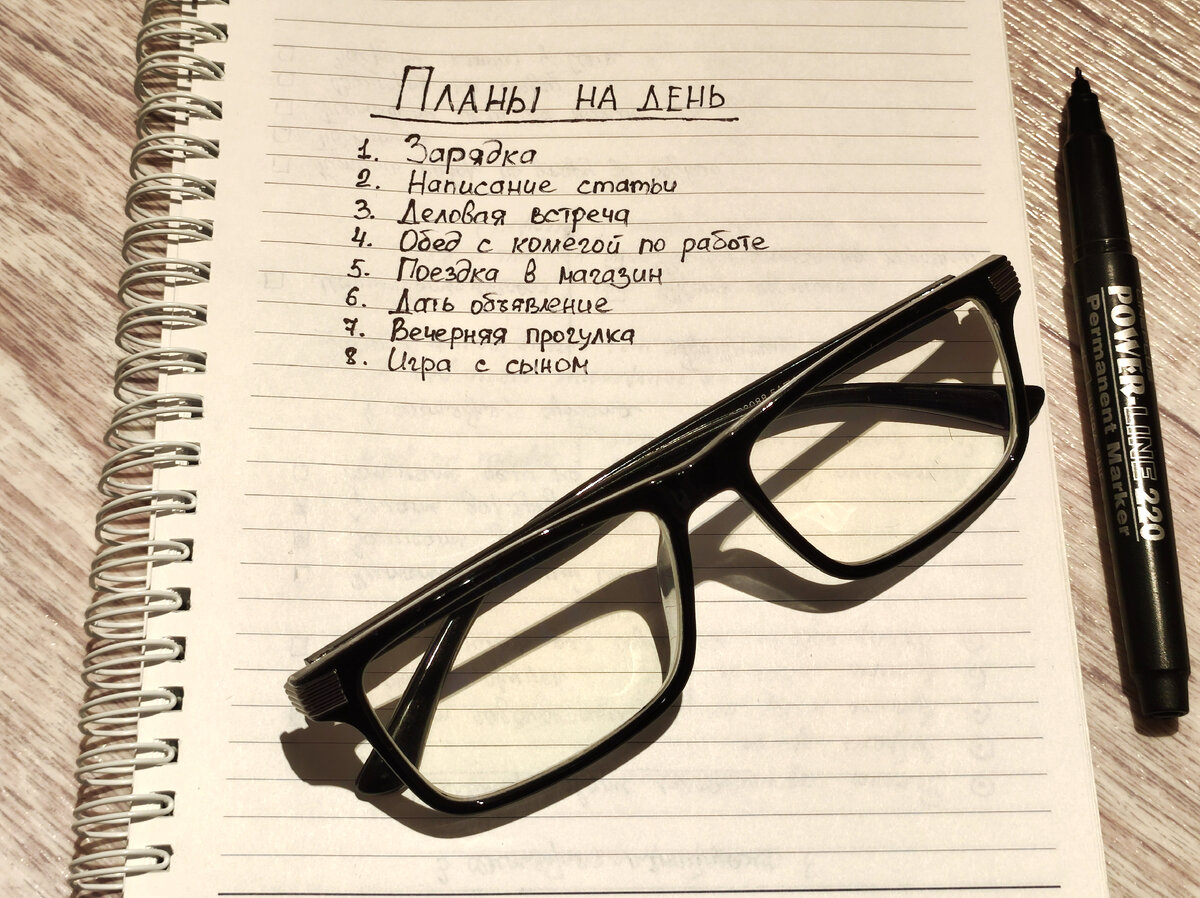 Планы на день
1. Зарядка
2. Написание статьи
3. Деловая встреча
4. Обед с коллегой по работе
5. Поездка в магазин
6. Дать объявление
7. Вечерняя прогулка
8. Игра с сыном
POWER-LINE 220
Permanent Marker